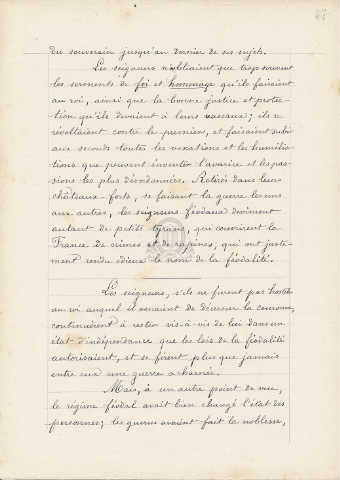 du souverain jusqu'au dernier de ses sujets.
Les seigneurs n'oubliaient que trop souvent
les serments de foi et hommage qu'ils faisaient
au roi, ainsi que la bonne justice et protec-
tion qu'ils devaient à leurs vassaux; ils se
révoltaient contre le premier, et faisaient subir
aux seconds toutes les vexations et les humilia-
tions que peuvent inventer l'avarice et les pas-
sions les plus désordonnées. Retirés dans leurs
châteaux-forts, se faisant la guerre les uns
aux autres, les seigneurs féodaux devinrent
autant de petits tyrans, qui couvrirent la
France de crimes et de rapines, qui ont juste-
ment rendu odieux le nom de la féodalité.
Les seigneurs, s'ils ne furent pas hostiles
au roi auquel il venaient de décerner la couronne,
continuèrent à rester vis-à-vis de lui dans un
état d'indépendance que les lois de la féodalité
autorisaient, et se firent plus que jamais
entre eux une guerre acharnée.
Mais, à un autre point de vue,
le régime féodal avait bien changé l'état des
personnes; les guerres avaient fait la noblesse,